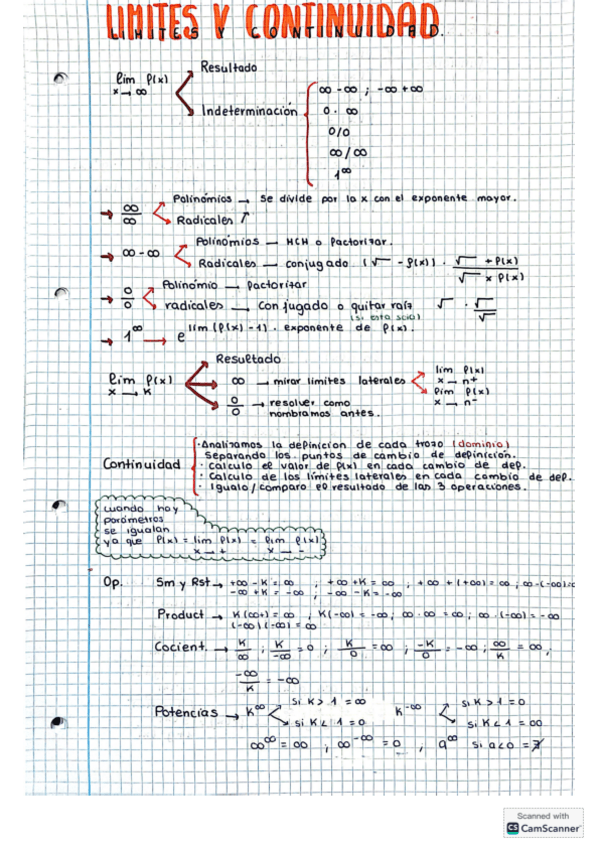 LIMITES Y CONTINUIDAD.
lim f(x)
x → ∞
Resultado
Indeterminación
∞ - ∞ ; -∞ + ∞
0 · ∞
0/0
∞/∞
1^∞
→ ∞/∞
Polinómios → se divide por la x con el exponente mayor.
Radicales
→ ∞ - ∞
Polinómios — MCM o factorizar.
Radicales — conjugado (√ - f(x)) · (√ + f(x))/(√ + f(x))
→ 0/0
Polinomio → factorizar
radicales → Conjugado o quitar raíz √ · √/√
(si esta sola)
→ 1^∞ → e^lim (f(x) - 1) · exponente de f(x).
lim f(x)
x → K
Resultado
∞ → mirar limites laterales
lim f(x)
x → n+
lim f(x)
x → n-
0/0 → resolver como
nombramos antes.
Continuidad
· Analizamos la definicion de cada trozo (dominio)
Separando los puntos de cambio de definición.
· Calculo el valor de f(x) en cada cambio de def.
· Calculo de los límites laterales en cada cambio de def.
· Igualo/comparo el resultado de las 3 operaciones.
Cuando hay
parámetros
se igualan
ya que f(x) = lim f(x) = lim f(x)
x → + x → -
Op.
Sm y Rst → +∞ - K = ∞ ; +∞ + K = ∞ ; +∞ + (+∞) = ∞ ;
-∞ + K = -∞ ; -∞ - K = -∞
Product → K(∞+) = ∞ ; K(-∞) = -∞ ; ∞ · ∞ = ∞ ; ∞ · (-∞) = -∞
(-∞)(-∞) = ∞
Cocient. → K/∞ ; K/-∞ = 0 ; K/0 = ∞ ; -K/0 = -∞ ; ∞/K = ∞ ;
-∞/K = -∞
Potencias → K^∞
si K > 1 = ∞
si K < 1 = 0
K^-∞
si K > 1 = 0
si K < 1 = ∞
∞^∞ = ∞ ; ∞^-∞ = 0 , a^∞ si a<0 = ∄
Scanned with
CS CamScanner